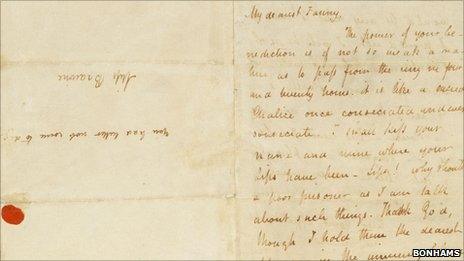 Miss Brawne
you had better not come to d
My dearest Fanny,
The power of your be-
nediction is of not so weak a na-
ture as to pass from the ring in four
and twenty hours. it is like a sacred
Chalice once consecrated and ever
consecrate. I shall kiss your
name and mine where your
Lips have been - Lips! why should
a poor prisoner as I am talk
about such things. Thank God,
though I hold them the dearest
in the universe
BONHAMS